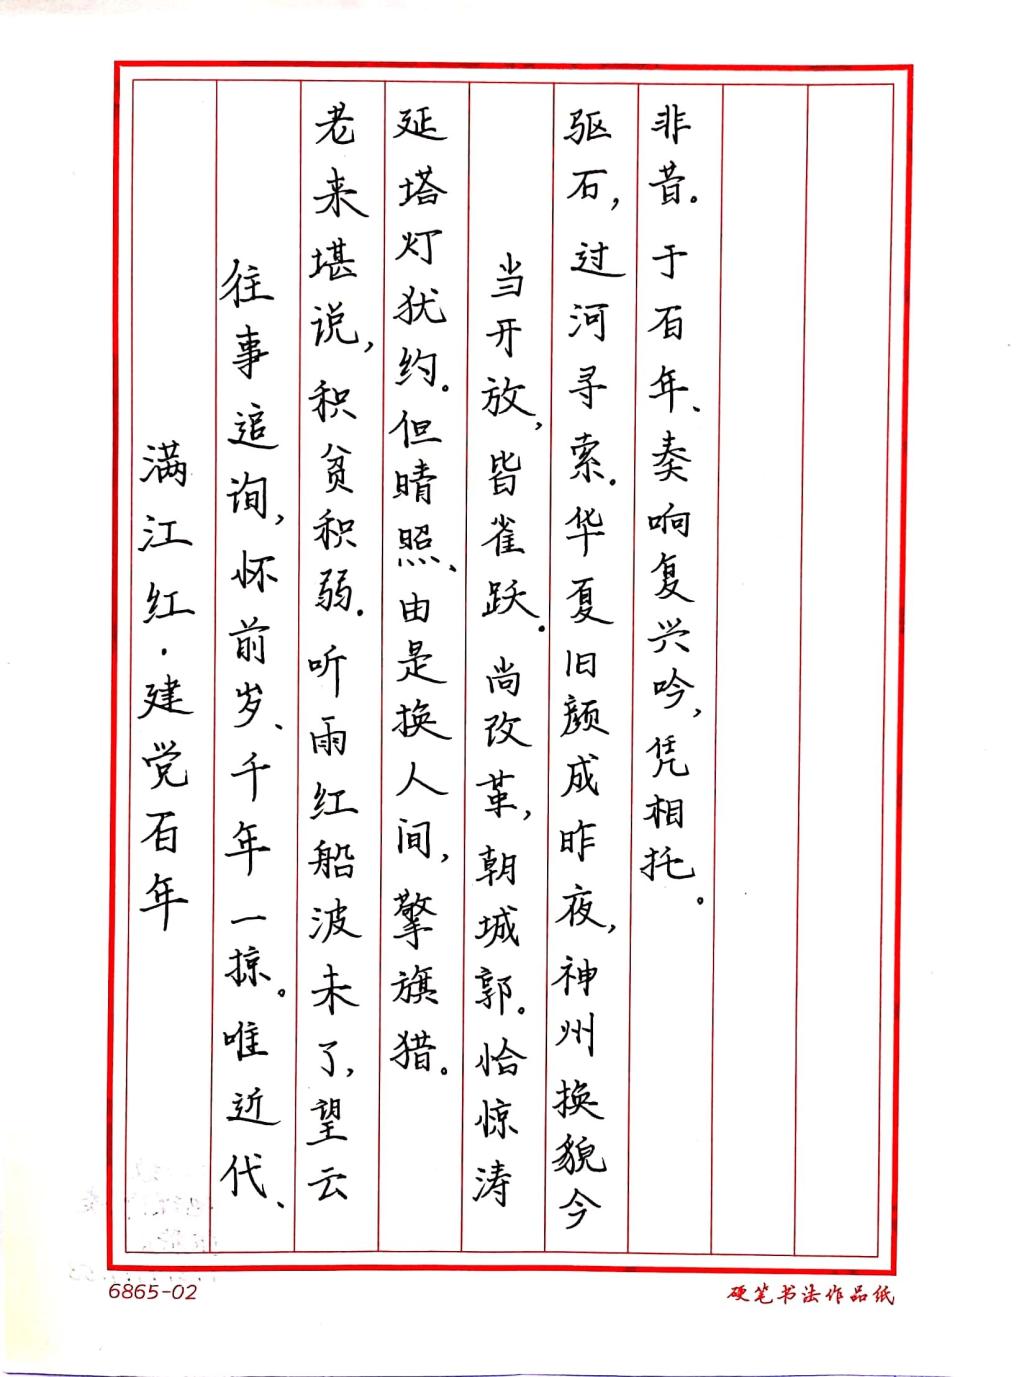 满江红·建党百年
往事追询，怀前岁、千年一掠。唯近代、
老来堪说，积贫积弱。听雨红船波未了，望云
延塔灯犹约。但晴照、由是换人间，擎旗猎。
当开放，皆雀跃。尚改革，朝城郭。恰惊涛
驱石，过河寻索。华夏旧颜成昨夜，神州换貌今
非昔。于百年、奏响复兴吟，凭相托。
6865-02
硬笔书法作品纸